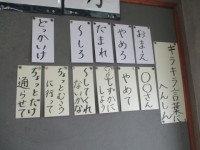 キラキラ言葉に
へんしん!
おまえ
やめろ
だまれ
～しろ
どっかいけ
〇〇さん
やめて
しずかに
しよう
～してくれ
ないかな
ちょっとむこう
に行って
ちょっとだけ
通らせて